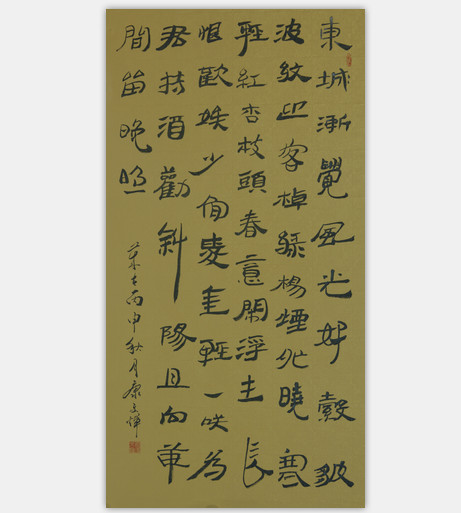 東城漸覺風光好縠皺
波紋迎客棹綠楊煙外曉寒
輕紅杏枝頭春意閙浮生長
恨歡娛少肯愛輕一咲為
君持酒勸斜陽且向華
間留晚照
丙申秋月康文